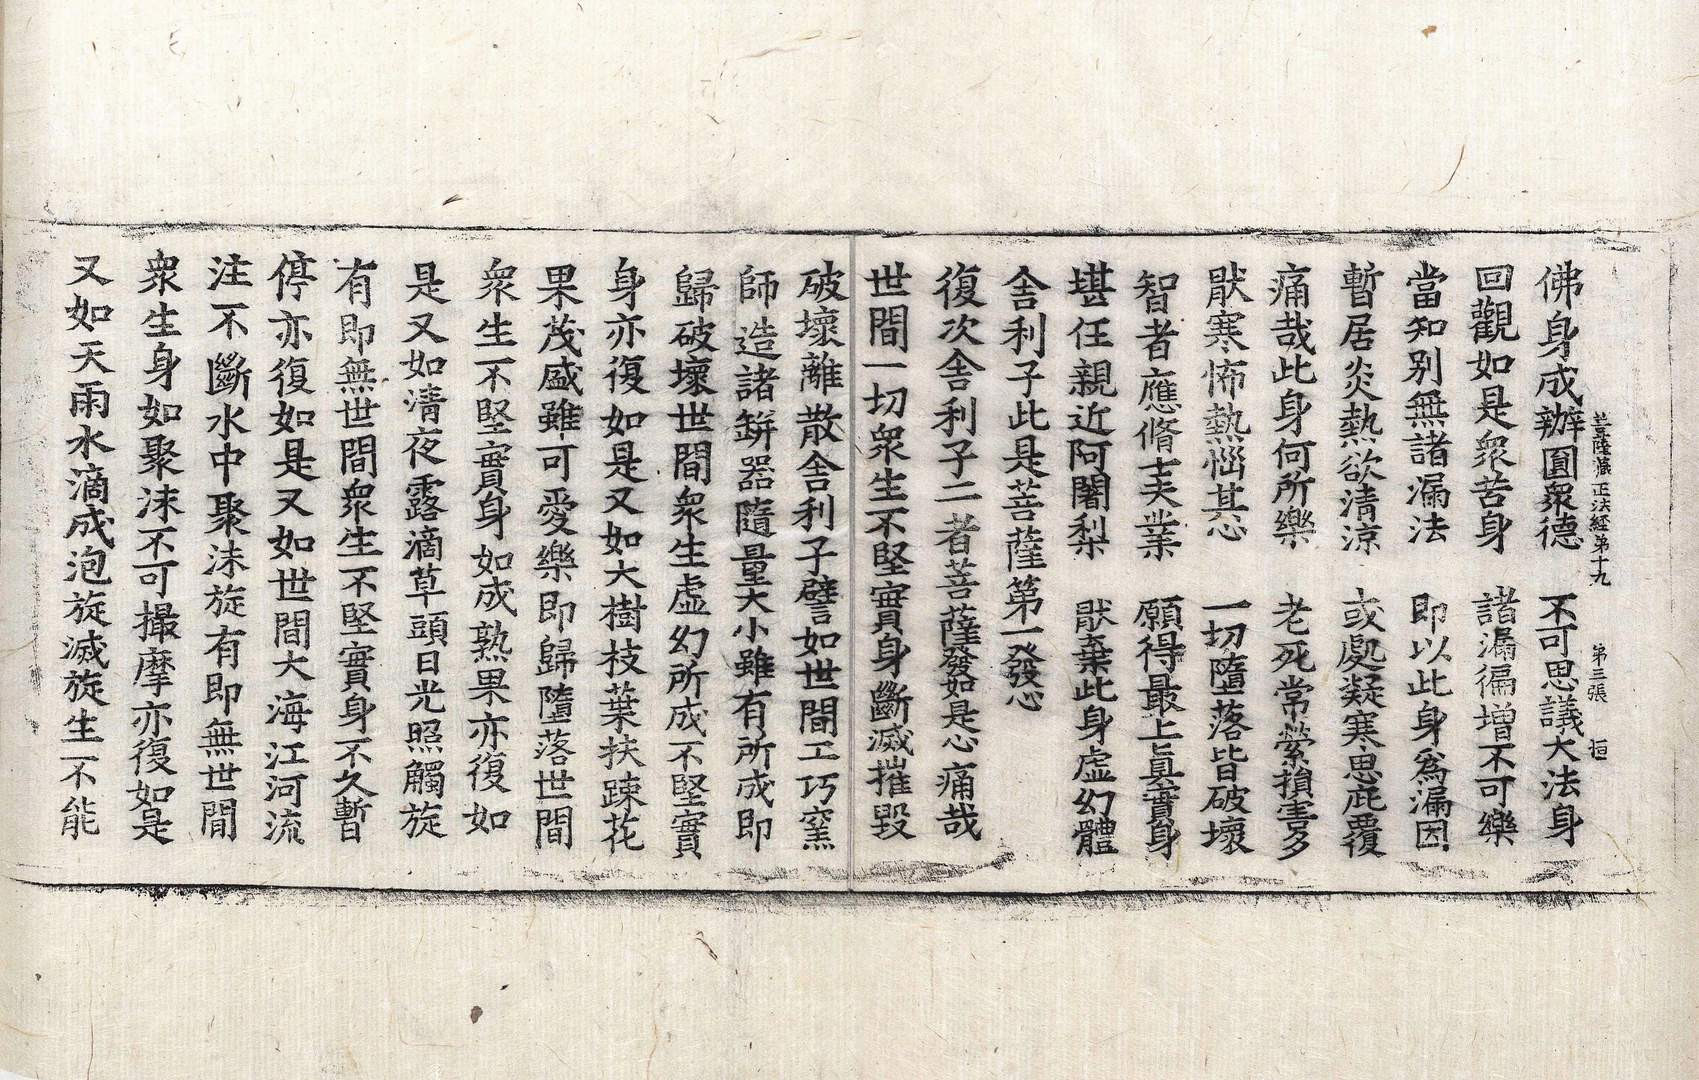 菩薩藏正法經第十九　第三張　恒
佛身成辦圓衆德　不可思議大法身
回觀如是衆苦身　諸漏徧增不可樂
當知别無諸漏法　即以此身爲漏因
暫居炎熱欲清涼　或處凝寒思庇覆
痛哉此身何所樂　老死常縈損害多
猒寒怖熱惱其心　一切墮落皆破壞
智者應脩士夫業　願得最上眞實身
堪任親近阿闍梨　猒棄此身虛幻體
舍利子此是菩薩第一發心
復次舍利子二者菩薩發如是心痛哉
世間一切衆生不堅實身斷滅摧毀
破壞離散舍利子譬如世間工巧窯
師造諸缾器隨量大小雖有所成即
歸破壞世間衆生虛幻所成不堅實
身亦復如是又如大樹枝葉扶踈花
果茂盛雖可愛樂即歸墮落世間
衆生不堅實身如成熟果亦復如
是又如清夜露滴草頭日光照觸旋
有即無世間衆生不堅實身不久暫
停亦復如是又如世間大海江河流
注不斷水中聚沫旋有即無世間
衆生身如聚沫不可撮摩亦復如是
又如天雨水滴成泡旋滅旋生不能